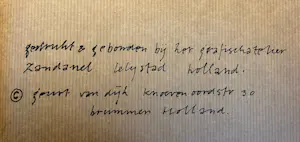 gedrukt & gebonden bij het grafisch atelier
Zandanel Lelystad Holland.
© geurt van dijk knoevenoordstr 30
brummen Holland.